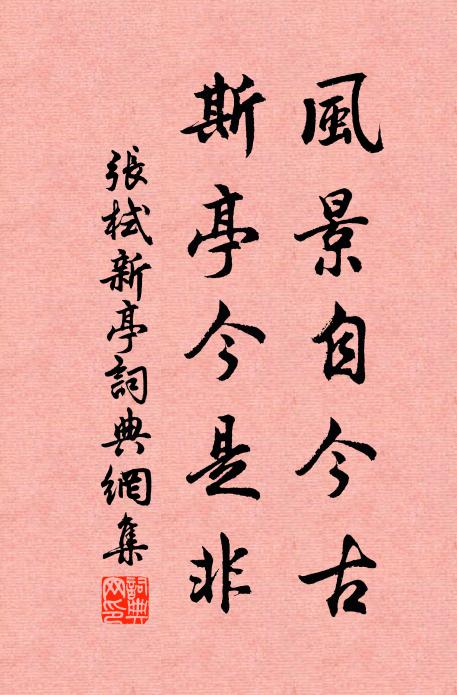 風景自今古
斯亭今是非
張栻新亭詞典網集
詞典網印